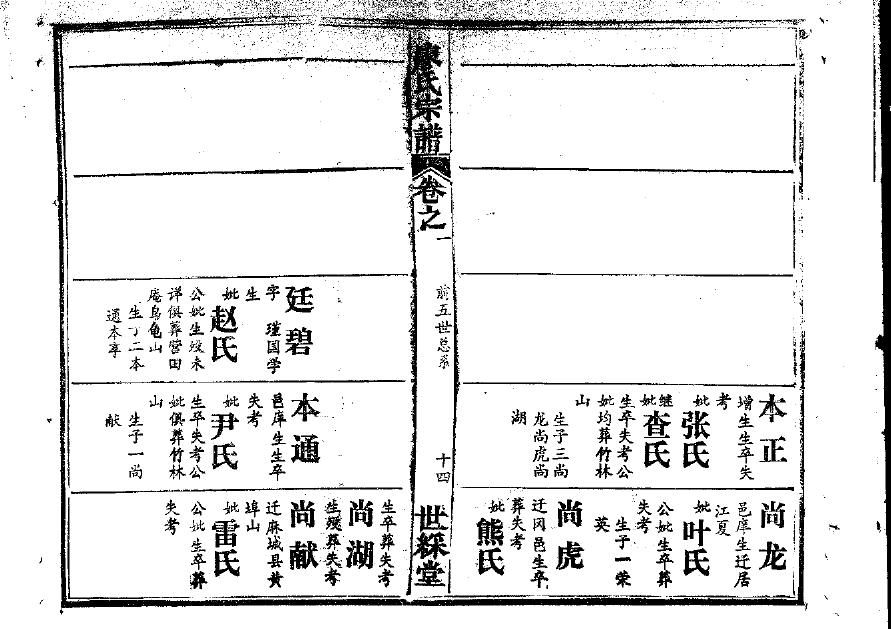 本正
增生生卒失
考
妣张氏
继妣查氏
生卒失考公
妣均葬竹林
山
生子三尚
龙尚虎尚
湖
尚龙
邑庠生迁居
江夏
妣叶氏
公妣生卒葬
失考
生子一荣
英
尚虎
迁冈邑生卒
葬失考
妣熊氏
康氏宗譜
卷之一
前五世总系
十四
世綵堂
廷碧
字瑾国学
生
妣赵氏
公妣生殁未
详俱葬营田
庵乌龟山
生子二本
通本享
本通
邑庠生生卒
失考
妣尹氏
生卒失考公
妣俱葬竹林
山
生子一尚
献
生卒葬失考
尚湖
生殁葬失考
尚献
迁麻城县黄
埠山
妣雷氏
公妣生卒葬
失考